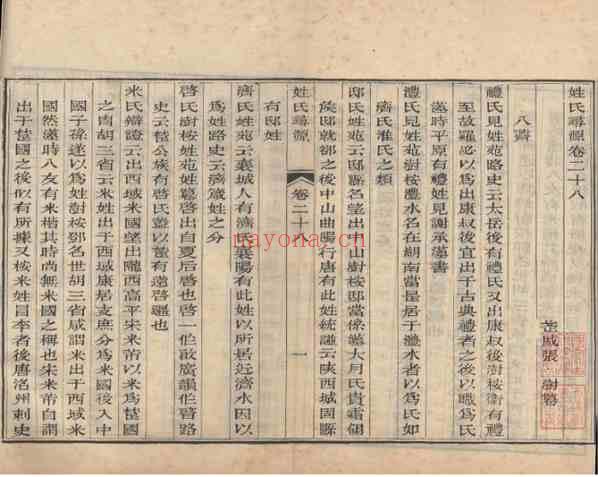 姓氏尋源卷二十八
武威張 澍纂
八薺
禮氏見姓苑路史云太岳後有禮氏又出康叔後澍桉衛有禮
至故羅泌以為出康叔後宜出于古典禮者之後以職為氏
漢時平原有禮姓見謝承漢書
澧氏見姓苑澍桉澧水名在湖南當是居于澧水者以為氏如
濟氏淮氏之類
邸氏姓苑云邸縣名望出中山澍桉邸當係漢大月氏貴霜
矦邸就郤之後中山曲陽行唐有此姓統譜云陝西城固縣
有邸姓
姓氏尋源
卷二十八
一
濟氏姓苑云襄城人有濟氏襄陽有此姓以所居近濟水因以
為姓路史云濟箴姓之分
啓氏澍桉姓苑啓出自夏后啓也啓一作敢廣韻作啓路
史云楚公族有啓氏蓋以薳有薳啓疆也
米氏辯證云出西域米國望出隴西高平宋米芾以米為楚國
之冑胡三省云米姓出于西域康居支庶分為米國後入中
國子孫遂以為姓澍桉鄧名世胡三省咸謂米出于西域米
國然漢時八友有米楷其時尚無米國之稱也宋米芾自謂
出于楚國之後似有所據又桉米姓冒李者後唐洺州刺史
nayona.cn